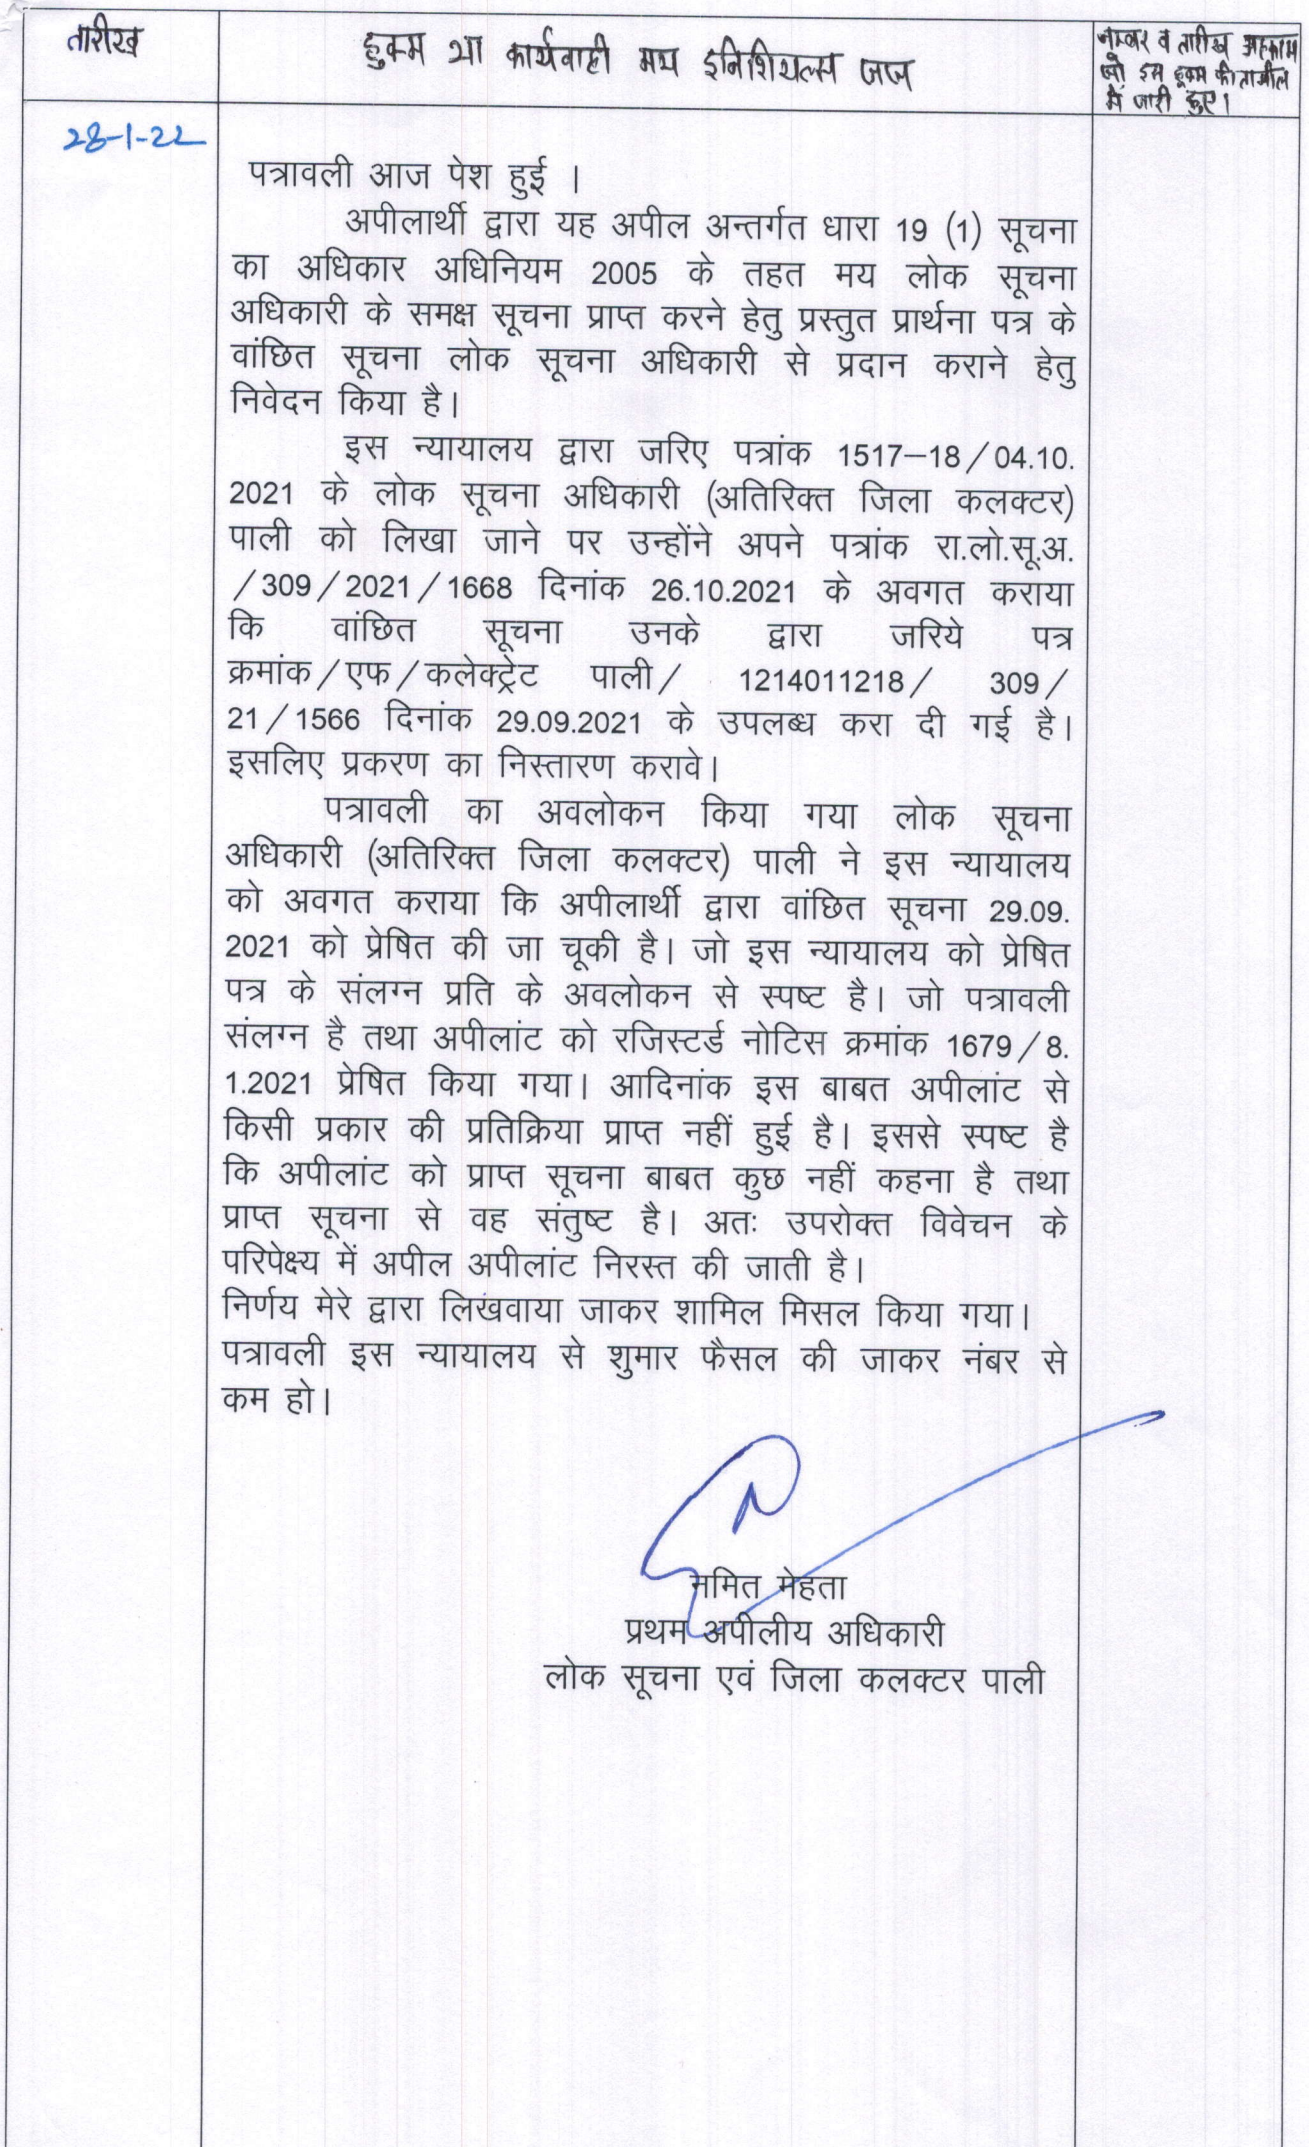 तारीख
हुक्म या कार्यवाही मय इनिशियल्स जज
नम्बर व तारीख अहकाम
जो इस हुक्म की तामील
में जारी हुए।
28-1-22
पत्रावली आज पेश हुई ।
अपीलार्थी द्वारा यह अपील अन्तर्गत धारा 19 (1) सूचना
का अधिकार अधिनियम 2005 के तहत मय लोक सूचना
अधिकारी के समक्ष सूचना प्राप्त करने हेतु प्रस्तुत प्रार्थना पत्र के
वांछित सूचना लोक सूचना अधिकारी से प्रदान कराने हेतु
निवेदन किया है।
इस न्यायालय द्वारा जरिए पत्रांक 1517–18/04.10.
2021 के लोक सूचना अधिकारी (अतिरिक्त जिला कलक्टर)
पाली को लिखा जाने पर उन्होंने अपने पत्रांक रा.लो.सू.अ.
/309/2021/1668 दिनांक 26.10.2021 के अवगत कराया
कि वांछित सूचना उनके द्वारा जरिये पत्र
क्रमांक/एफ/कलेक्ट्रेट पाली/ 1214011218/ 309/
21/1566 दिनांक 29.09.2021 के उपलब्ध करा दी गई है।
इसलिए प्रकरण का निस्तारण करावे।
पत्रावली का अवलोकन किया गया लोक सूचना
अधिकारी (अतिरिक्त जिला कलक्टर) पाली ने इस न्यायालय
को अवगत कराया कि अपीलार्थी द्वारा वांछित सूचना 29.09.
2021 को प्रेषित की जा चूकी है। जो इस न्यायालय को प्रेषित
पत्र के संलग्न प्रति के अवलोकन से स्पष्ट है। जो पत्रावली
संलग्न है तथा अपीलांट को रजिस्टर्ड नोटिस क्रमांक 1679/8.
1.2021 प्रेषित किया गया। आदिनांक इस बाबत अपीलांट से
किसी प्रकार की प्रतिक्रिया प्राप्त नहीं हुई है। इससे स्पष्ट है
कि अपीलांट को प्राप्त सूचना बाबत कुछ नहीं कहना है तथा
प्राप्त सूचना से वह संतुष्ट है। अतः उपरोक्त विवेचन के
परिपेक्ष्य में अपील अपीलांट निरस्त की जाती है।
निर्णय मेरे द्वारा लिखवाया जाकर शामिल मिसल किया गया।
पत्रावली इस न्यायालय से शुमार फैसल की जाकर नंबर से
कम हो।
नमित मेहता
प्रथम अपीलीय अधिकारी
लोक सूचना एवं जिला कलक्टर पाली